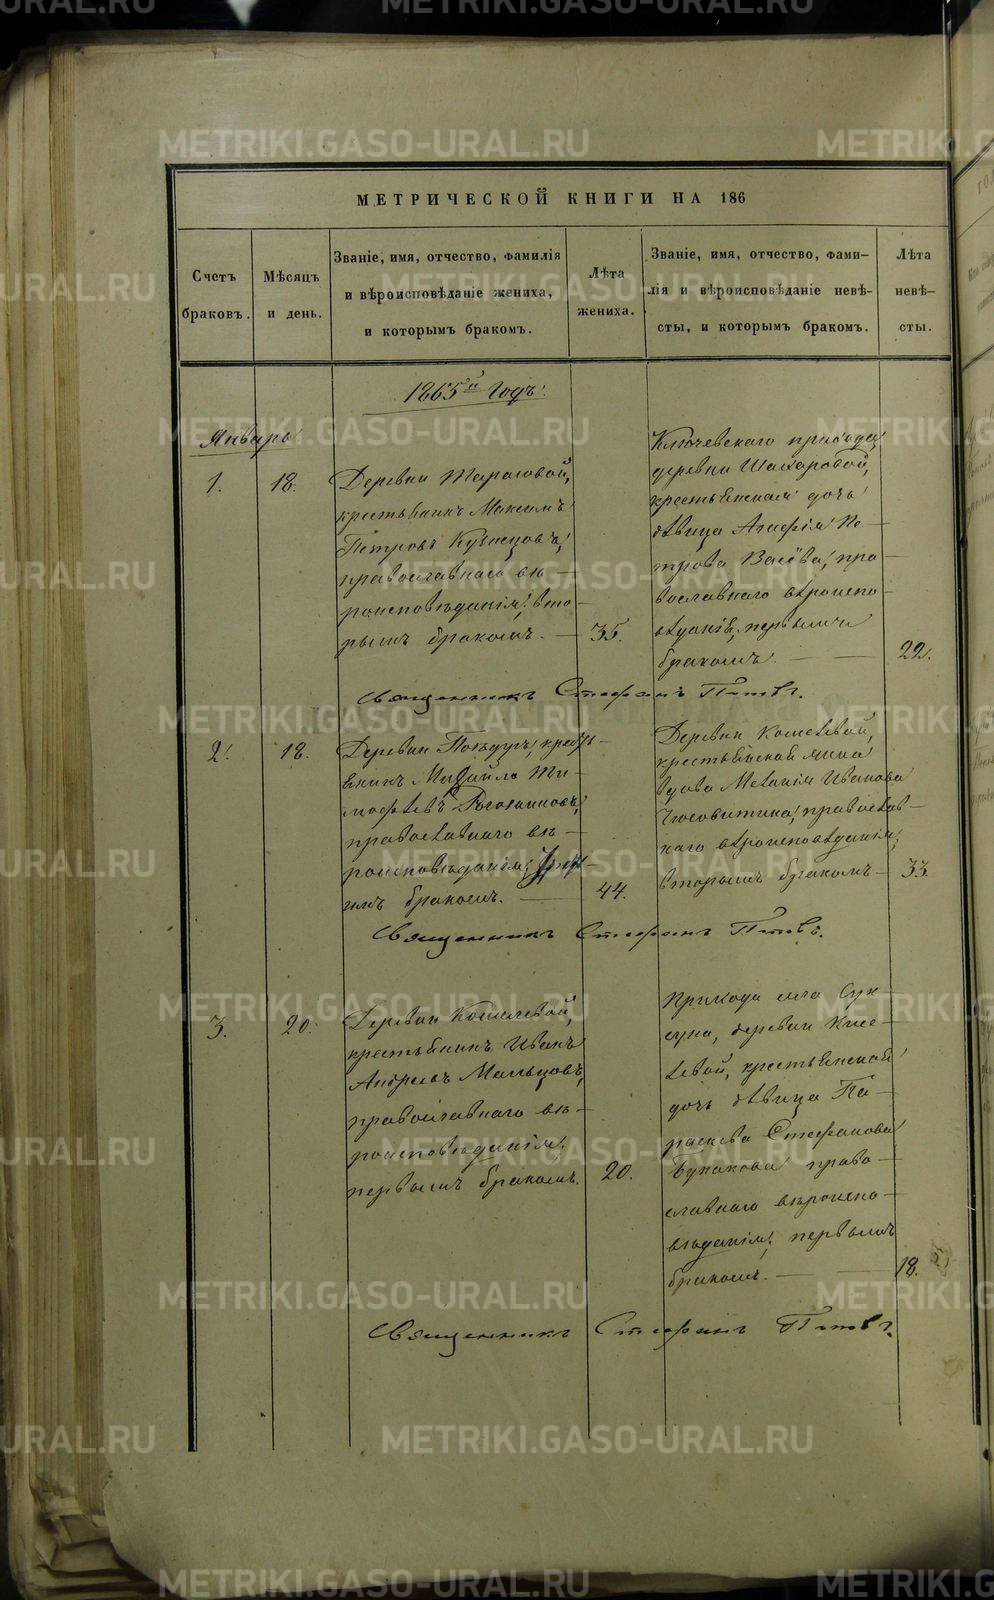 МЕТРИЧЕСКОЙ КНИГИ НА 186
Счетъ
браковъ.
Мѣсяцъ
и день.
Званіе, имя, отчество, фамилія
и вѣроисповѣданіе жениха,
и которымъ бракомъ.
Лѣта
жениха.
Званіе, имя, отчество, фами-
лія и вѣроисповѣданіе невѣ-
сты, и которымъ бракомъ.
Лѣта
невѣ-
сты.
1865й Годъ.
Январь
1.
18.
Деревни Тарасовой,
крестьянинъ Максимъ
Петровъ Кузнецовъ,
православнаго вѣ-
роисповѣданія, вто-
рымъ бракомъ.
35.
Ключевскаго прихода,
деревни Шахаровой,
крестьянская дочь
дѣвица Агафія Пе-
трова Васёва, пра
вославнаго вѣроиспо-
вѣданія, первымъ
бракомъ.
22.
Священникъ Стефанъ Поповъ.
2.
18.
Деревни крестья-
янинъ Михайло Ти-
мофѣевъ Рогожниковъ,
православнаго вѣ-
роисповѣданія, треть-
имъ бракомъ.
44.
Деревни Кошелевой,
крестьянская жена
вдова Меланія Иванова
Чюсовитина, православ-
наго вѣроисповѣданія,
вторымъ бракомъ
33.
Священникъ Стефанъ Поповъ.
3.
20.
Деревни Кошелевой,
крестьянинъ Иванъ
Андреевъ Мальцовъ,
православнаго вѣ-
роисповѣданія,
первымъ бракомъ.
20.
Прихода села Сук-
суна, деревни Кисе-
левой, крестьянская
дочь дѣвица Па-
раскева Стефанова
право-
славнаго вѣроиспо-
вѣданія, первымъ
бракомъ.
18.
Священникъ Стефанъ Поповъ.
METRIKI.GASO-URAL.RU